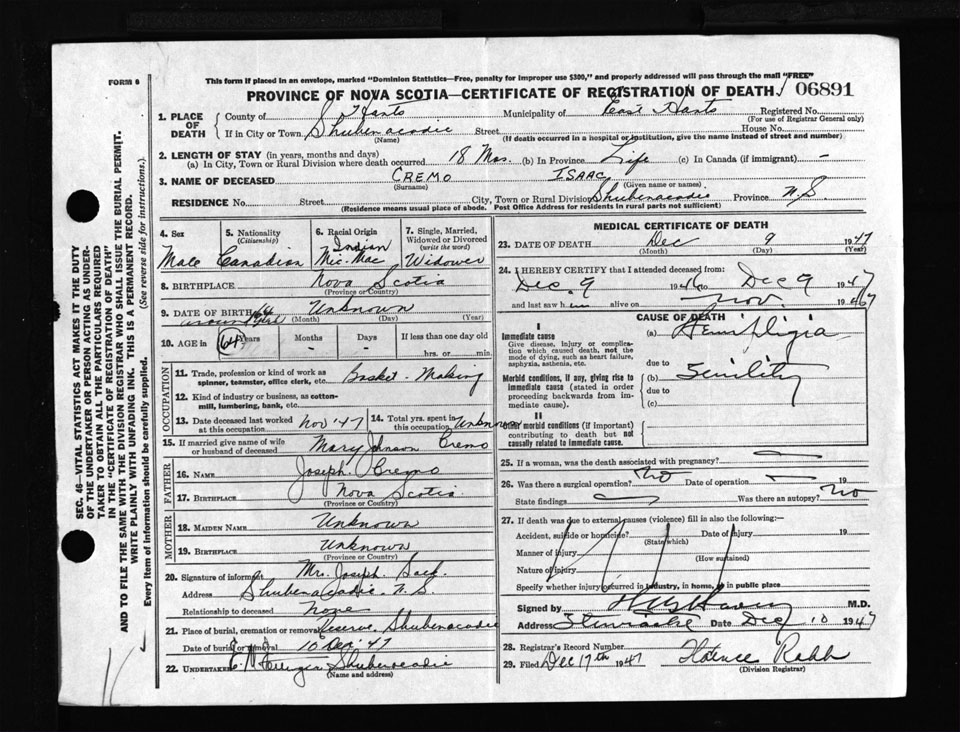 FORM 6
This form if placed in an envelope, marked "Dominion Statistics—Free, penalty for improper use $300," and properly addressed will pass through the mail "FREE"
PROVINCE OF NOVA SCOTIA—CERTIFICATE OF REGISTRATION OF DEATH. 06891
SEC. 46—VITAL STATISTICS ACT MAKES IT THE DUTY
OF THE UNDERTAKER OR PERSON ACTING AS UNDER-
TAKER TO OBTAIN ALL THE PARTICULARS REQUIRED
IN THE "CERTIFICATE OF REGISTRATION OF DEATH"
AND TO FILE THE SAME WITH THE DIVISION REGISTRAR WHO SHALL ISSUE THE BURIAL PERMIT.
WRITE PLAINLY WITH UNFADING INK. THIS IS A PERMANENT RECORD.
Every item of information should be carefully supplied. (See reverse side for instructions.)
1. PLACE OF DEATH
County of Hants Municipality of East Hants Registered No.
(For use of Registrar General only)
If in City or Town Shubenacadie Street House No.
(Name) (If death occurred in a hospital or institution, give the name instead of street and number)
2. LENGTH OF STAY (in years, months and days)
(a) In City, Town or Rural Division where death occurred 18 Mos. (b) In Province Life (c) In Canada (if immigrant) -
3. NAME OF DECEASED CREMO ISAAC
(Surname) (Given name or names)
RESIDENCE No. Street City, Town or Rural Division Shubenacadie Province N.S.
(Residence means usual place of abode. Post Office Address for residents in rural parts not sufficient)
4. Sex
Male
5. Nationality
(Citizenship)
Canadian
6. Racial Origin
Indian
Mic-Mac
7. Single, Married,
Widowed or Divorced
(write the word)
Widower
8. BIRTHPLACE Nova Scotia
(Province or Country)
9. DATE OF BIRTH Unknown
(Month) (Day) (Year)
10. AGE in 64 Years Months - Days - If less than one day old
hrs. or min.
OCCUPATION
11. Trade, profession or kind of work as
spinner, teamster, office clerk, etc. Basket-Making
12. Kind of industry or business, as cotton-
mill, lumbering, bank, etc.
13. Date deceased last worked
at this occupation Nov '47
14. Total yrs. spent in
this occupation Unknown
15. If married give name of wife
or husband of deceased Mary Johnson Cremo
FATHER
16. NAME Joseph Cremo
17. BIRTHPLACE Nova Scotia
(Province or Country)
MOTHER
18. MAIDEN NAME Unknown
19. BIRTHPLACE Unknown
(Province or Country)
20. Signature of informant Mr. Joseph Sack
Address Shubenacadie N.S.
Relationship to deceased None
21. Place of burial, cremation or removal Reserve Shubenacadie
Date of burial or removal 10 Dec '47
22. UNDERTAKER Shubenacadie
(Name and address)
MEDICAL CERTIFICATE OF DEATH
23. DATE OF DEATH Dec 9 1947
(Month) (Day) (Year)
24. I HEREBY CERTIFY that I attended deceased from:
Dec. 9 to Dec 9 1947
and last saw him alive on Nov
CAUSE OF DEATH
I
Immediate cause
Give disease, injury or complica-
tion which caused death, not the
mode of dying, such as heart failure,
asphyxia, asthenia, etc.
(a) Hemiplegia
due to
Morbid conditions, if any, giving rise to
immediate cause (stated in order
proceeding backwards from im-
mediate cause).
(b) Senility
due to
(c)
II
Other morbid conditions (if important)
contributing to death but not
causally related to immediate cause.
25. If a woman, was the death associated with pregnancy?
26. Was there a surgical operation? No Date of operation 19
State findings Was there an autopsy? No
27. If death was due to external causes (violence) fill in also the following:—
Accident, suicide or homicide? Date of injury 19
(State which)
Manner of injury
(How sustained)
Nature of injury
Specify whether injury occurred in industry, in home, or in public place
Signed by M.D.
Address Date Dec 10 1947
28. Registrar's Record Number
29. Filed Dec 17th 1947 Florence Rabb
(Division Registrar)